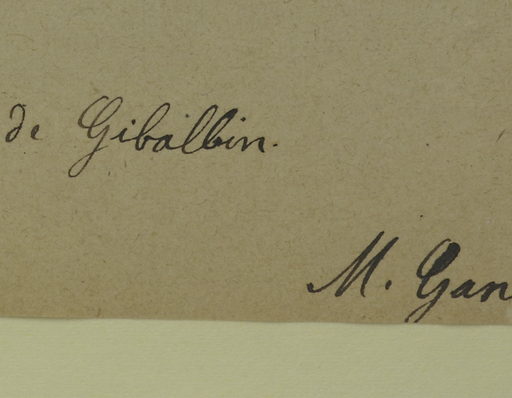 de Gibalbin.
M. Gan